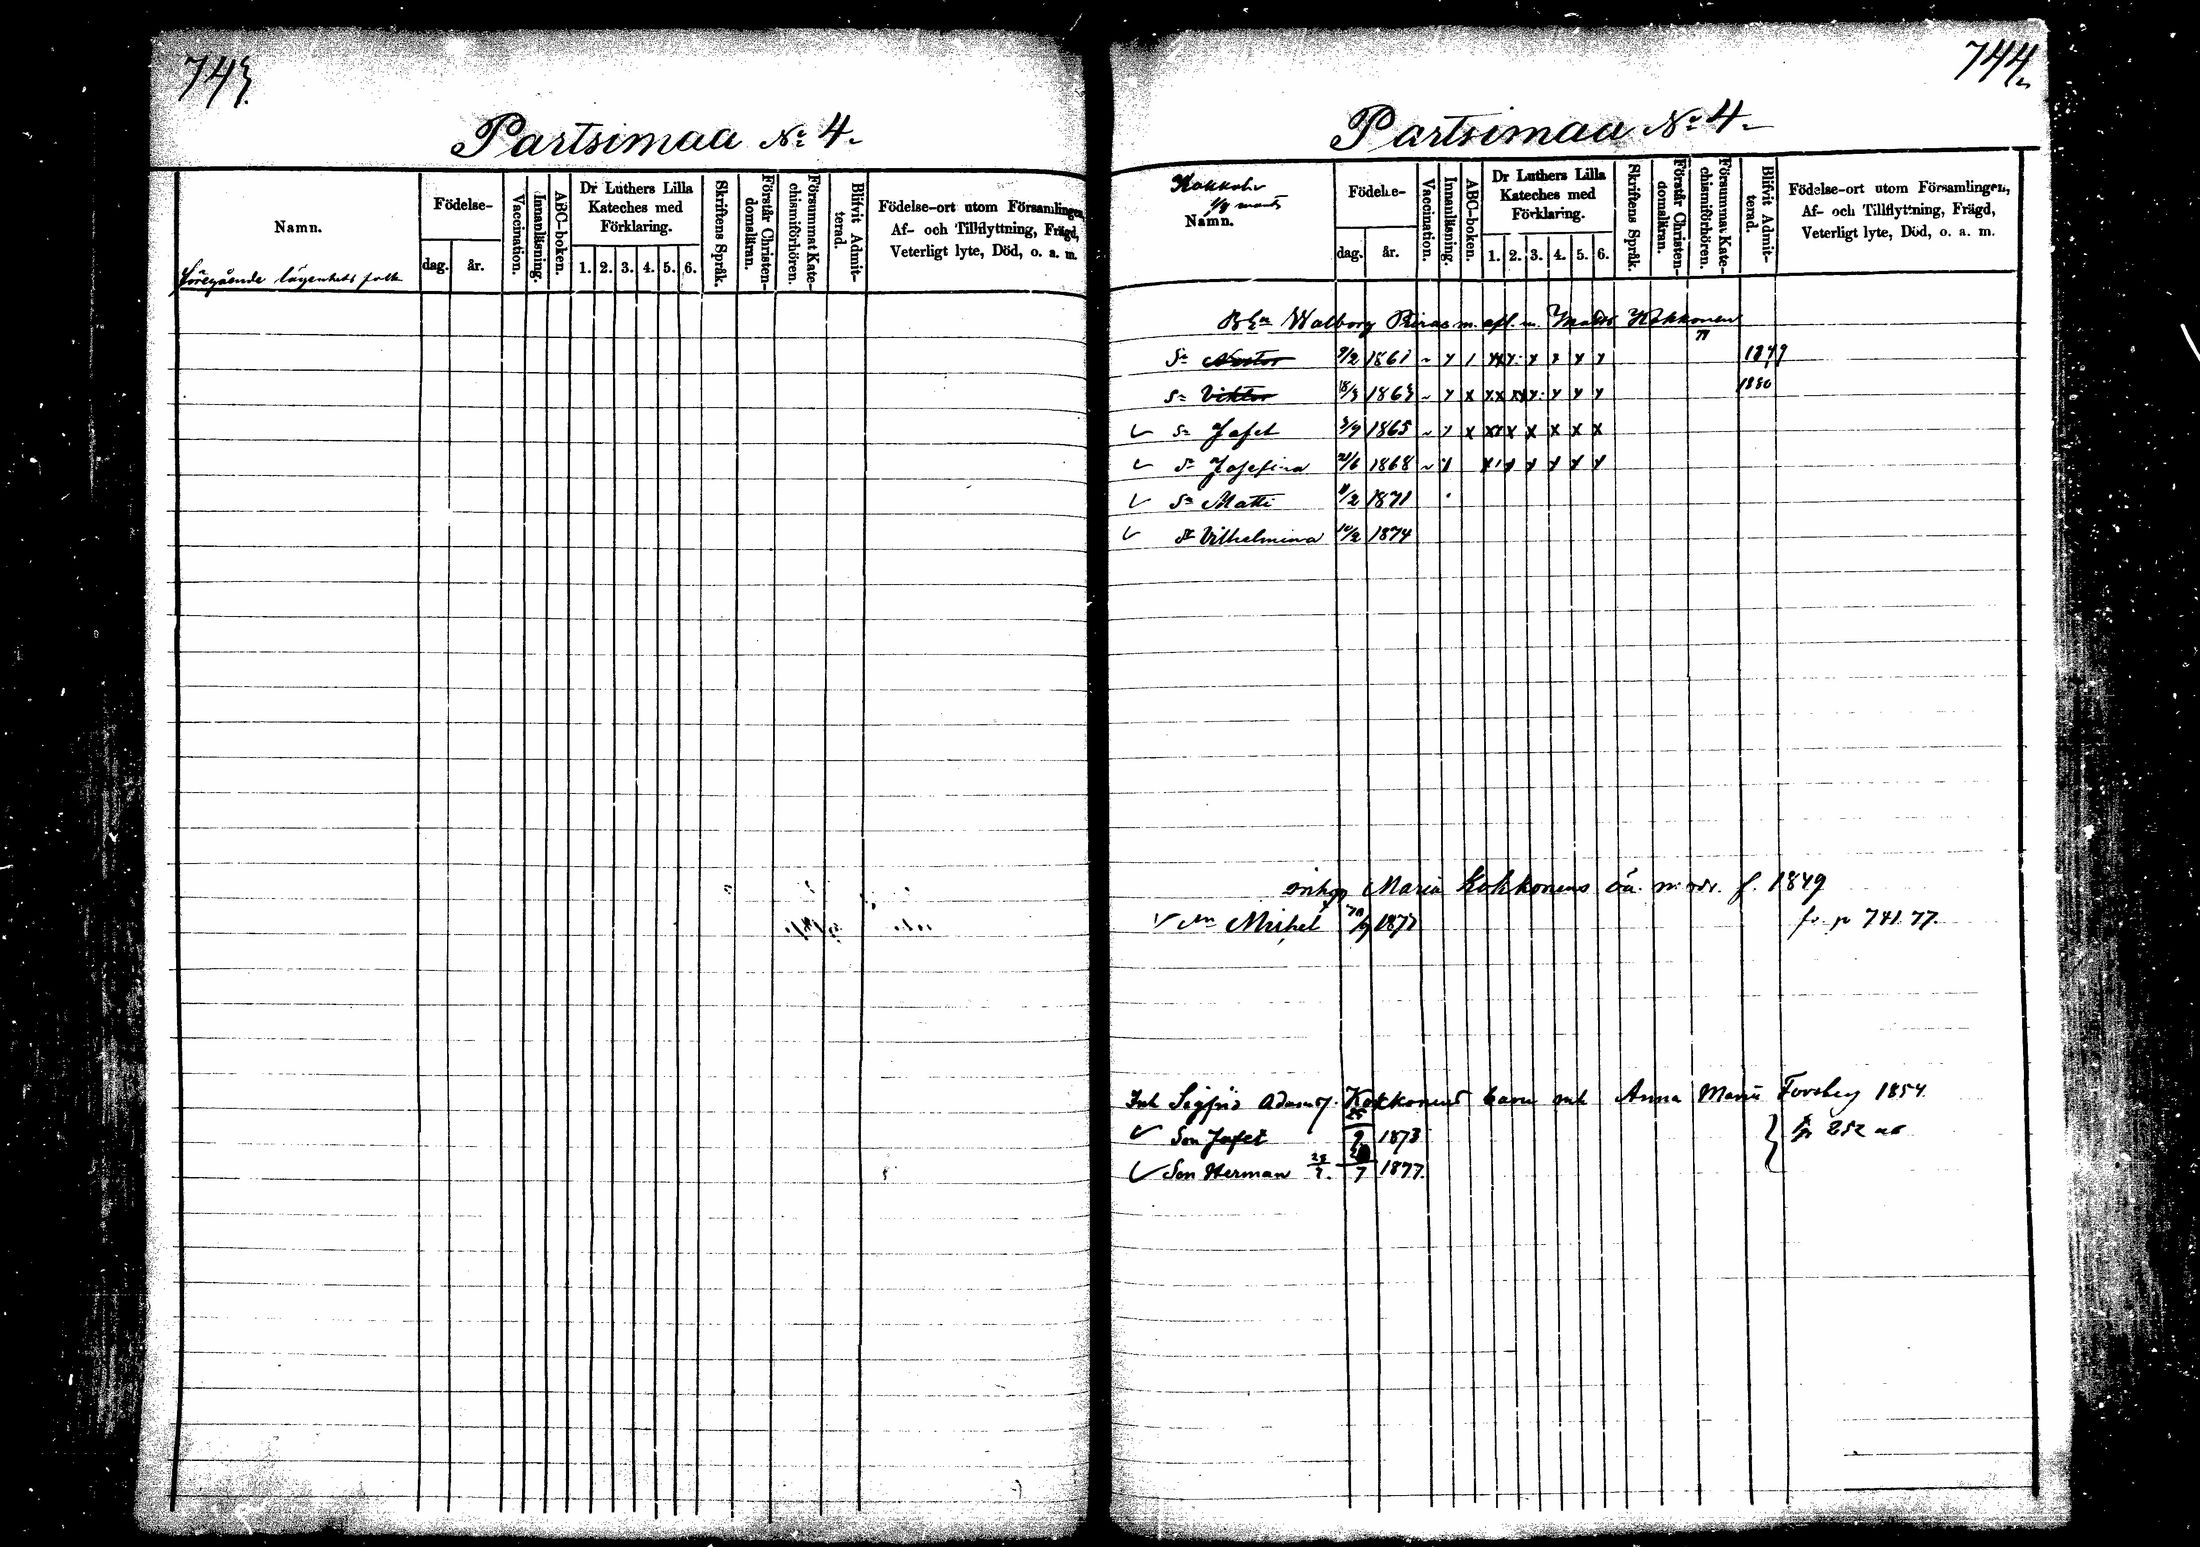 743.
Partsimaa No 4.
Namn.
Födelse-
dag.
år.
Vaccination.
Innanläsning.
ABC-boken.
Dr Luthers Lilla
Kateches med
Förklaring.
1. 2. 3. 4. 5. 6.
Skriftens Språk.
Förstår Christen-
domsläran.
Försummat Kate-
chismiförhören.
Blifvit Admit-
terad.
Födelse-ort utom Församlingen,
Af- och Tillflyttning, Frägd,
Veterligt lyte, Död, o. a. m.
Föregående lägenhets folk
744
Partsimaa No 4.
Namn.
Födelse-
dag.
år.
Vaccination.
Innanläsning.
ABC-boken.
Dr Luthers Lilla
Kateches med
Förklaring.
1. 2. 3. 4. 5. 6.
Skriftens Språk.
Förstår Christen-
domsläran.
Försummat Kate-
chismiförhören.
Blifvit Admit-
terad.
Födelse-ort utom Församlingen,
Af- och Tillflyttning, Frägd,
Veterligt lyte, Död, o. a. m.
Walborg m. afl. m. Kokkonen
Sn Nestor 9/2 1861 1879
Sn Viktor 18/3 1863 1880
Sn Jafet 3/9 1865
Dr Josefina 21/6 1868
Sn Matti 11/2 1871
Dr Vilhelmina 10/2 1874
inhgn Maria Kokkonens oä. f. 1849
Mikel 1877 fr. p 741. 77.
Inh Sigfrid Adamsf. Kokkonens barn mh Anna Maria Forsberg 1854.
Son Jafet 25/9 1873 252
Son Herman 7 1877.